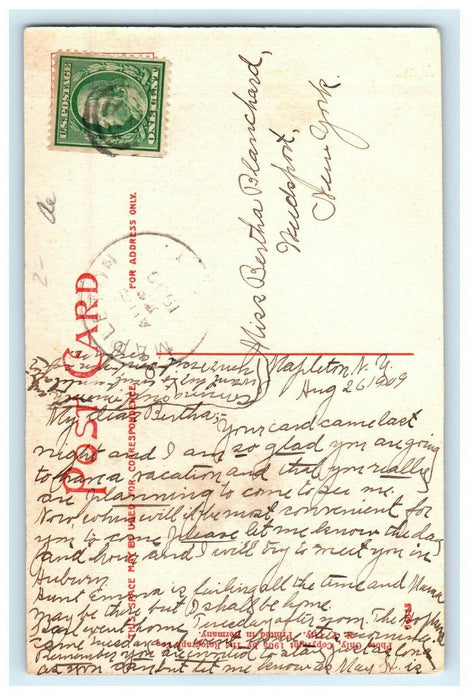 U.S. POSTAGE
ONE CENT
Miss Bertha Blanchard,
Weedsport,
New York.
FOR ADDRESS ONLY.
POST CARD
THIS SPACE MAY BE USED FOR CORRESPONDENCE.
MAPLETON
AUG
1909
Mapleton N. Y.
Aug 26 1909
My Dear Bertha:-
Your card came last
night and I am so glad you are going
to have a vacation and that you really
are planning to come to see me.
Now when will it be most convenient for
you to come Please let me know the day
and hour and I will try to meet you in
Auburn.
Aunt Emma is failing all the time and Mama
may be there but I shall be home.
went home Tuesday after noon. The
came Tuesday
Remember you are invited to stay as long
as you can but let me know as May H. is
Photo Only, Copyright 1905 by the Rotograph Co.
N. Y. City. Printed in Germany.